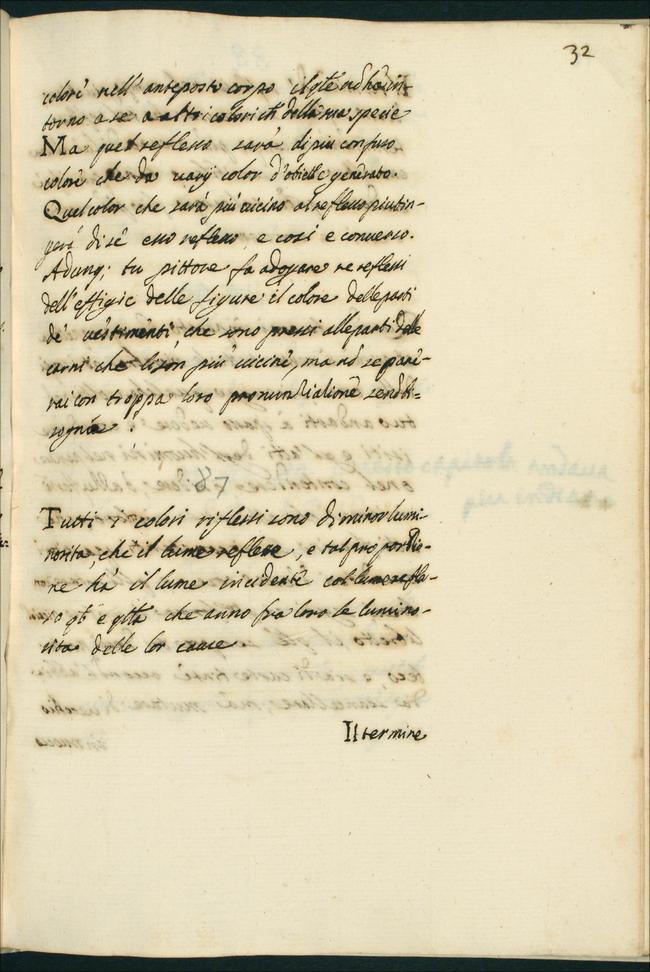 32
colore nell' anteposto corpo il q̃le nõ há in-
torno a se a altri colori ch̃ della sua specie
Ma quel reflesso sará di piu confuso
colore che da varij color d'obietti é generato.
Quel color che sará piú vicino al reflesso piu tin-
gerá di sé esso reflesso e cosi e converso.
Adunq; tu pittore fa adoprare ne reflessi
dell'effigie delle figure il colore delle parti
de' vestimenti che sono pressi alle parti delle
carni che li son piu vicine, ma nõ separe-
rai con troppa loro pronuntiatione se nõ bi-
sogna
87
Tutti i colori riflessi sono di minor lumi-
nosita, che il lume reflesso, e tal proportio-
ne há il lume incidente col lume refle-
so q̃t e q̃lla che anno fra loro le lumino-
sita delle lor cause
Il termine